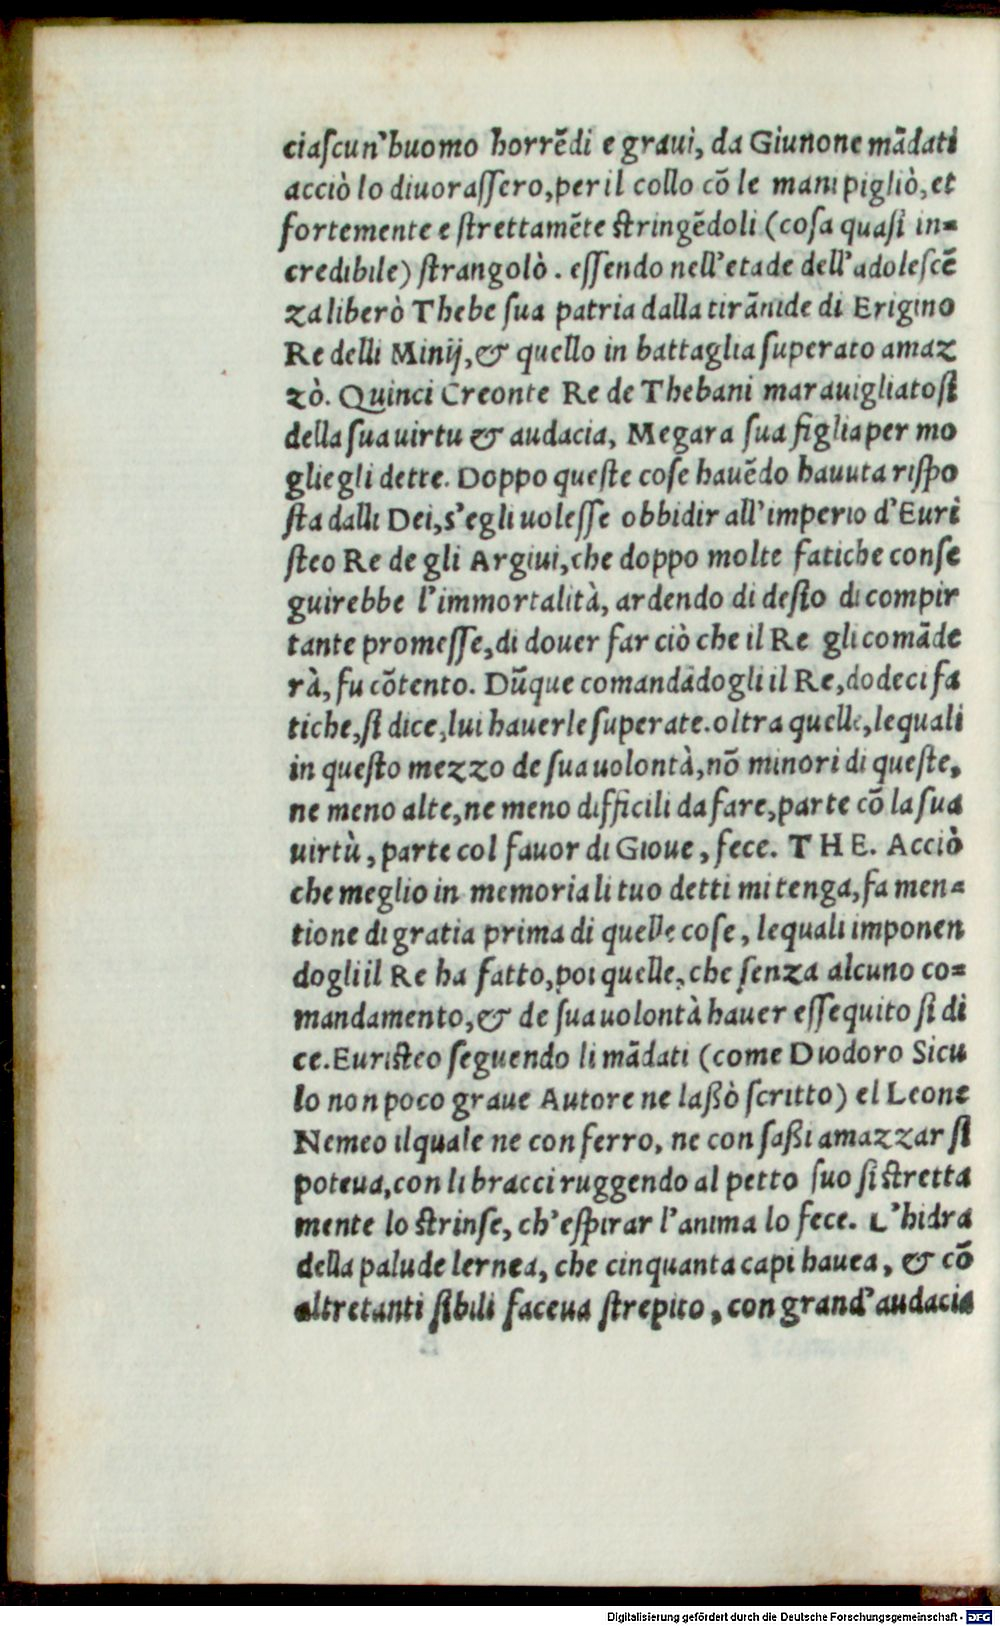 ciaſcun'huomo horrẽdi e graui, da Giunone mãdati
acciò lo diuoraſſero, per il collo cõ le mani pigliò, et
fortemente e ſtrettamẽte ſtringẽdoli (coſa quaſi in=
credibile) ſtrangolò . eſſendo nell'etade dell'adoleſcẽ
za liberò Thebe ſua patria dalla tirãnide di Erigino
Re delli Minij, & quello in battaglia ſuperato amaz
zò. Quinci Creonte Re de Thebani marauigliatoſi
della ſua uirtu & audacia, Megara ſua figlia per mo
glie gli dette. Doppo queſte coſe hauẽdo hauuta riſpo
ſta dalli Dei, s'egli uoleſſe obbidir all'imperio d'Euri
ſteo Re de gli Argiui, che doppo molte fatiche conſe
guirebbe l'immortalità, ardendo di deſio di compir
tante promeſſe, di douer far ciò che il Re gli comãde
rà, fu cõtento. Dũque comandãdogli il Re, dodeci fa
tiche, ſi dice, lui hauerle ſuperate. oltra quelle, lequali
in queſto mezzo de ſua uolontà, nõ minori di queſte,
ne meno alte, ne meno difficili da fare, parte cõ la ſua
uirtù, parte col fauor di Gioue, fece. THE. Acciò
che meglio in memoria li tuo detti mi tenga, fa men=
tione di gratia prima di quelle coſe, lequali imponen
dogli il Re ha fatto, poi quelle, che ſenza alcuno co=
mandamento, & de ſua uolontà hauer eſſequito ſi di
ce. Euriſteo ſeguendo li mãdati (come Diodoro Sicu
lo non poco graue Autore ne laßò ſcritto) el Leone
Nemeo ilquale ne con ferro, ne con ſaßi amazzar ſi
poteua, con li bracci ruggendo al petto ſuo ſi ſtretta
mente lo ſtrinſe, ch'eſpirar l'anima lo fece. L'hidra
della palude lernea, che cinquanta capi hauea, & cõ
altretanti ſibili faceua ſtrepito, con grand'audacia
Digitalisierung gefördert durch die Deutsche Forschungsgemeinschaft - DFG